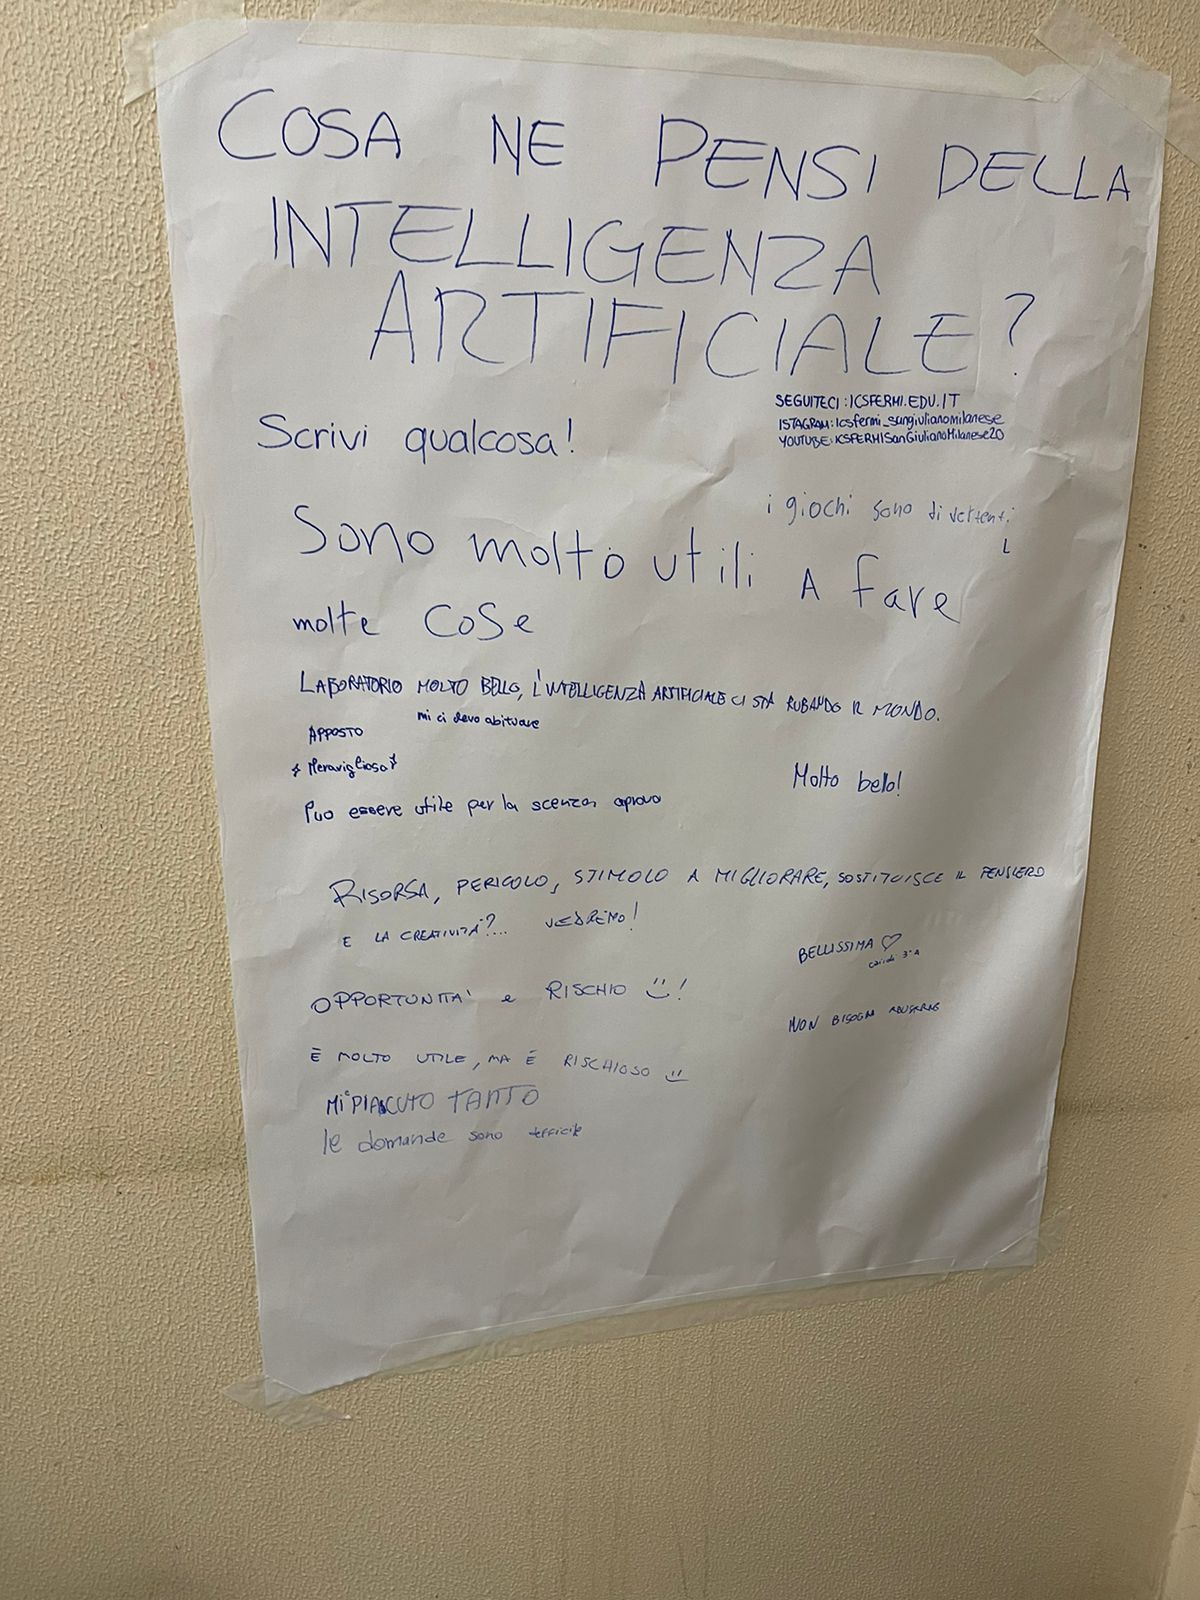 COSA NE PENSI DELLA
INTELLIGENZA
ARTIFICIALE?
SEGUITECI: ICSFERMI.EDU.IT
ISTAGRAM: Icsfermi_sangiulianomilanese
YOUTUBE: ICSFERMISanGiulianoMilanese20
Scrivi qualcosa!
i giochi sono divertenti
Sono molto utili A fare
molte CoSe
LABORATORIO MOLTO BELLO, L'INTELLIGENZA ARTIFICIALE CI STA RUBANDO IL MONDO.
mi ci devo abituare
APPOSTO
Meravigliosa
Molto bello!
Può essere utile per la scenza aprovo
RISORSA, PERICOLO, STIMOLO A MIGLIORARE, SOSTITUISCE IL PENSIERO
E LA CREATIVITÀ?... VEDREMO!
BELLISSIMA ♡
3°A
OPPORTUNITA' e RISCHIO !
NON BISOGNA ABUSARNE
È MOLTO UTILE, MA È RISCHIOSO
MI È PIACUTO TANTO
le domande sono difficile